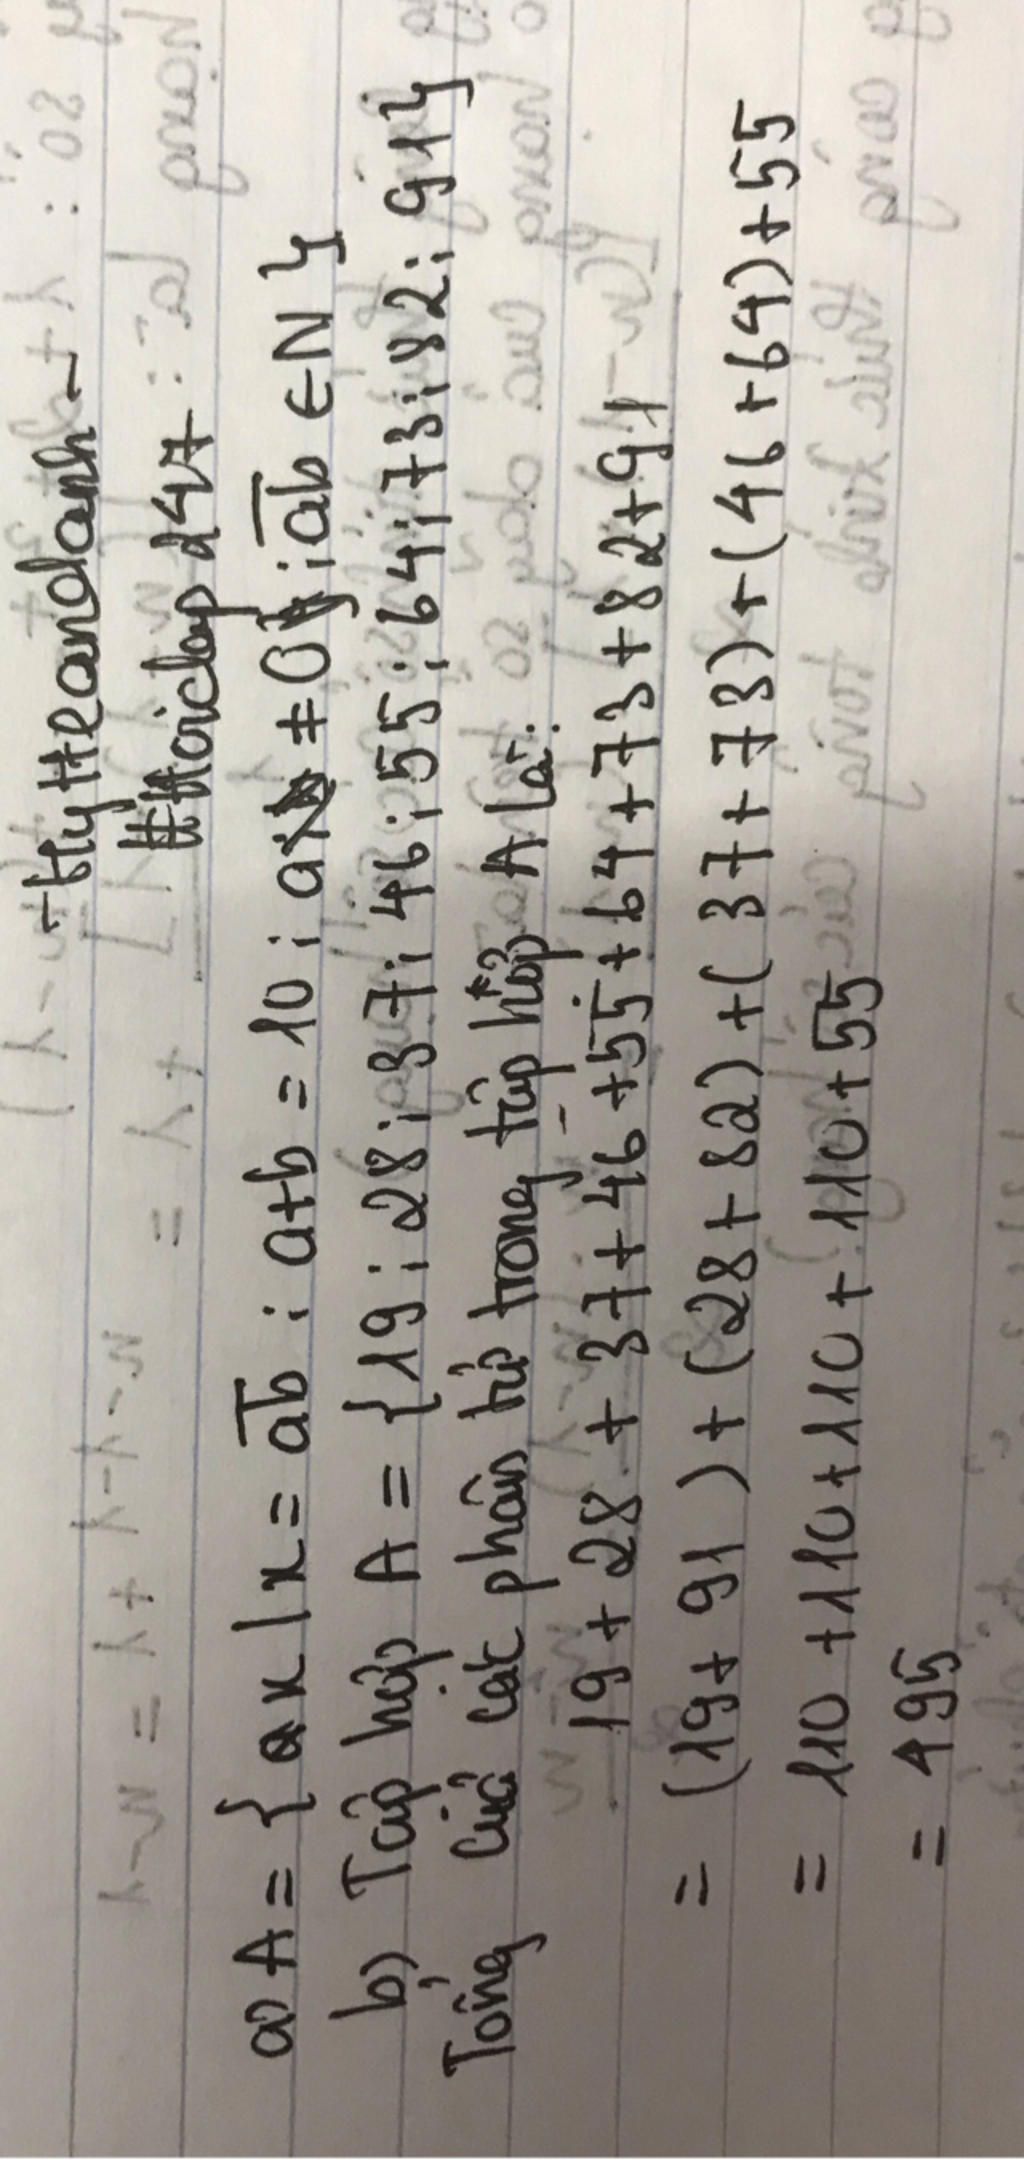 -tlyHeandanh-
#Hoidap247
a) A = { x | x = ab : a+b = 10 ; a ≠ 0 ; ab ∈ N }
b) Tập hợp A = {19 ; 28 ; 37 ; 46 ; 55 ; 64 ; 73 ; 82 ; 91}
Tổng của các phần tử trong tập hợp A là:
19 + 28 + 37 + 46 + 55 + 64 + 73 + 82 + 91
= (19 + 91) + (28 + 82) + (37 + 73) + (46 + 64) + 55
= 110 + 110 + 110 + 110 + 55
= 495